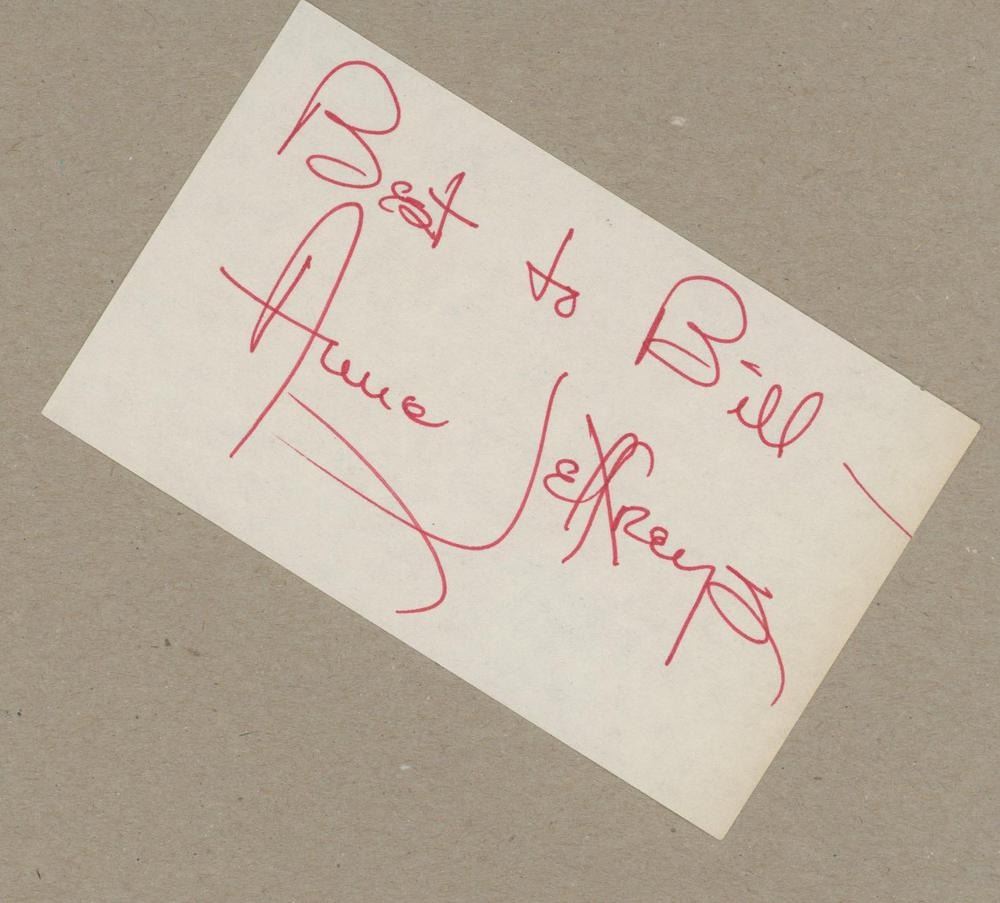 Best to Bill -
Anne Jeffreys